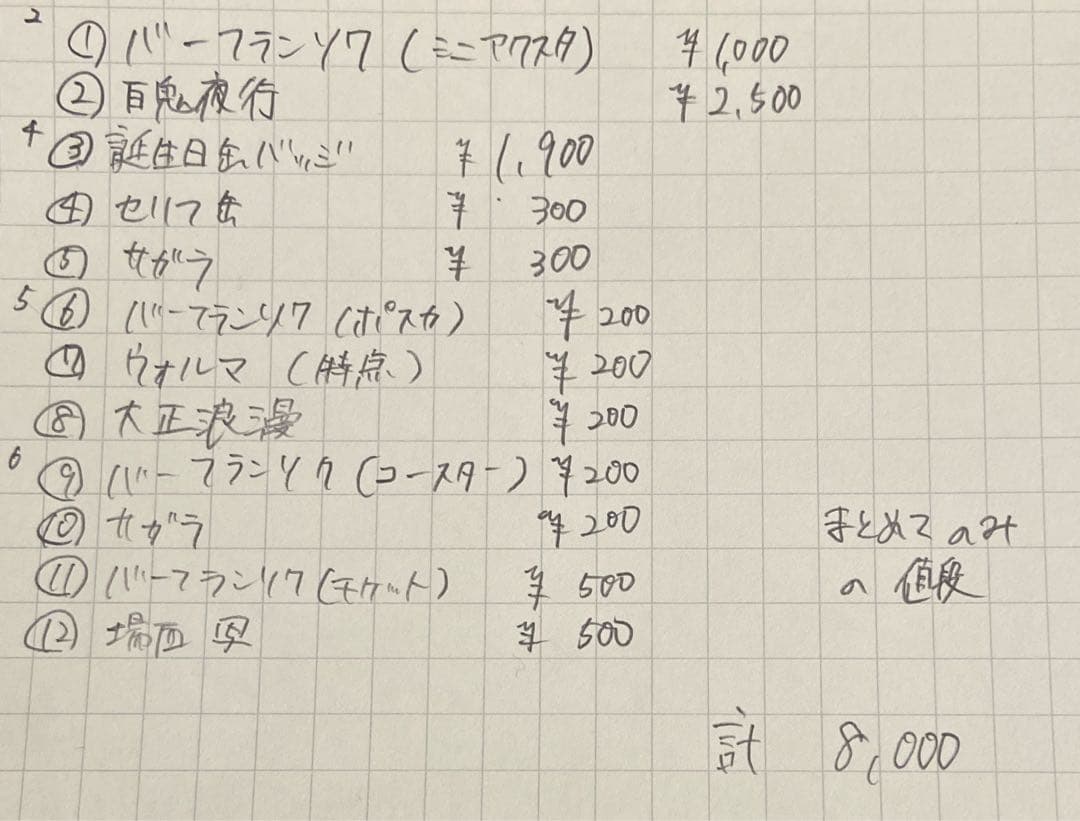 2 ① バーフランソワ (ミニアクスタ) ¥1,000
②百鬼夜行 ¥2,500
4 ③ 誕生日缶バッジ ¥1,900
④ セリフ缶 ¥300
⑤ サガラ ¥300
5 ⑥ バーフランソワ (ポスカ) ¥200
⑦ ウォルマ (特点) ¥200
⑧ 大正浪漫 ¥200
6 ⑨ バーフランソワ (コースター) ¥200
⑩ サガラ ¥200
⑪ バーフランソワ (チケット) ¥500
⑫ 場面写 ¥500
まとめてのみ
の値段
計 8,000